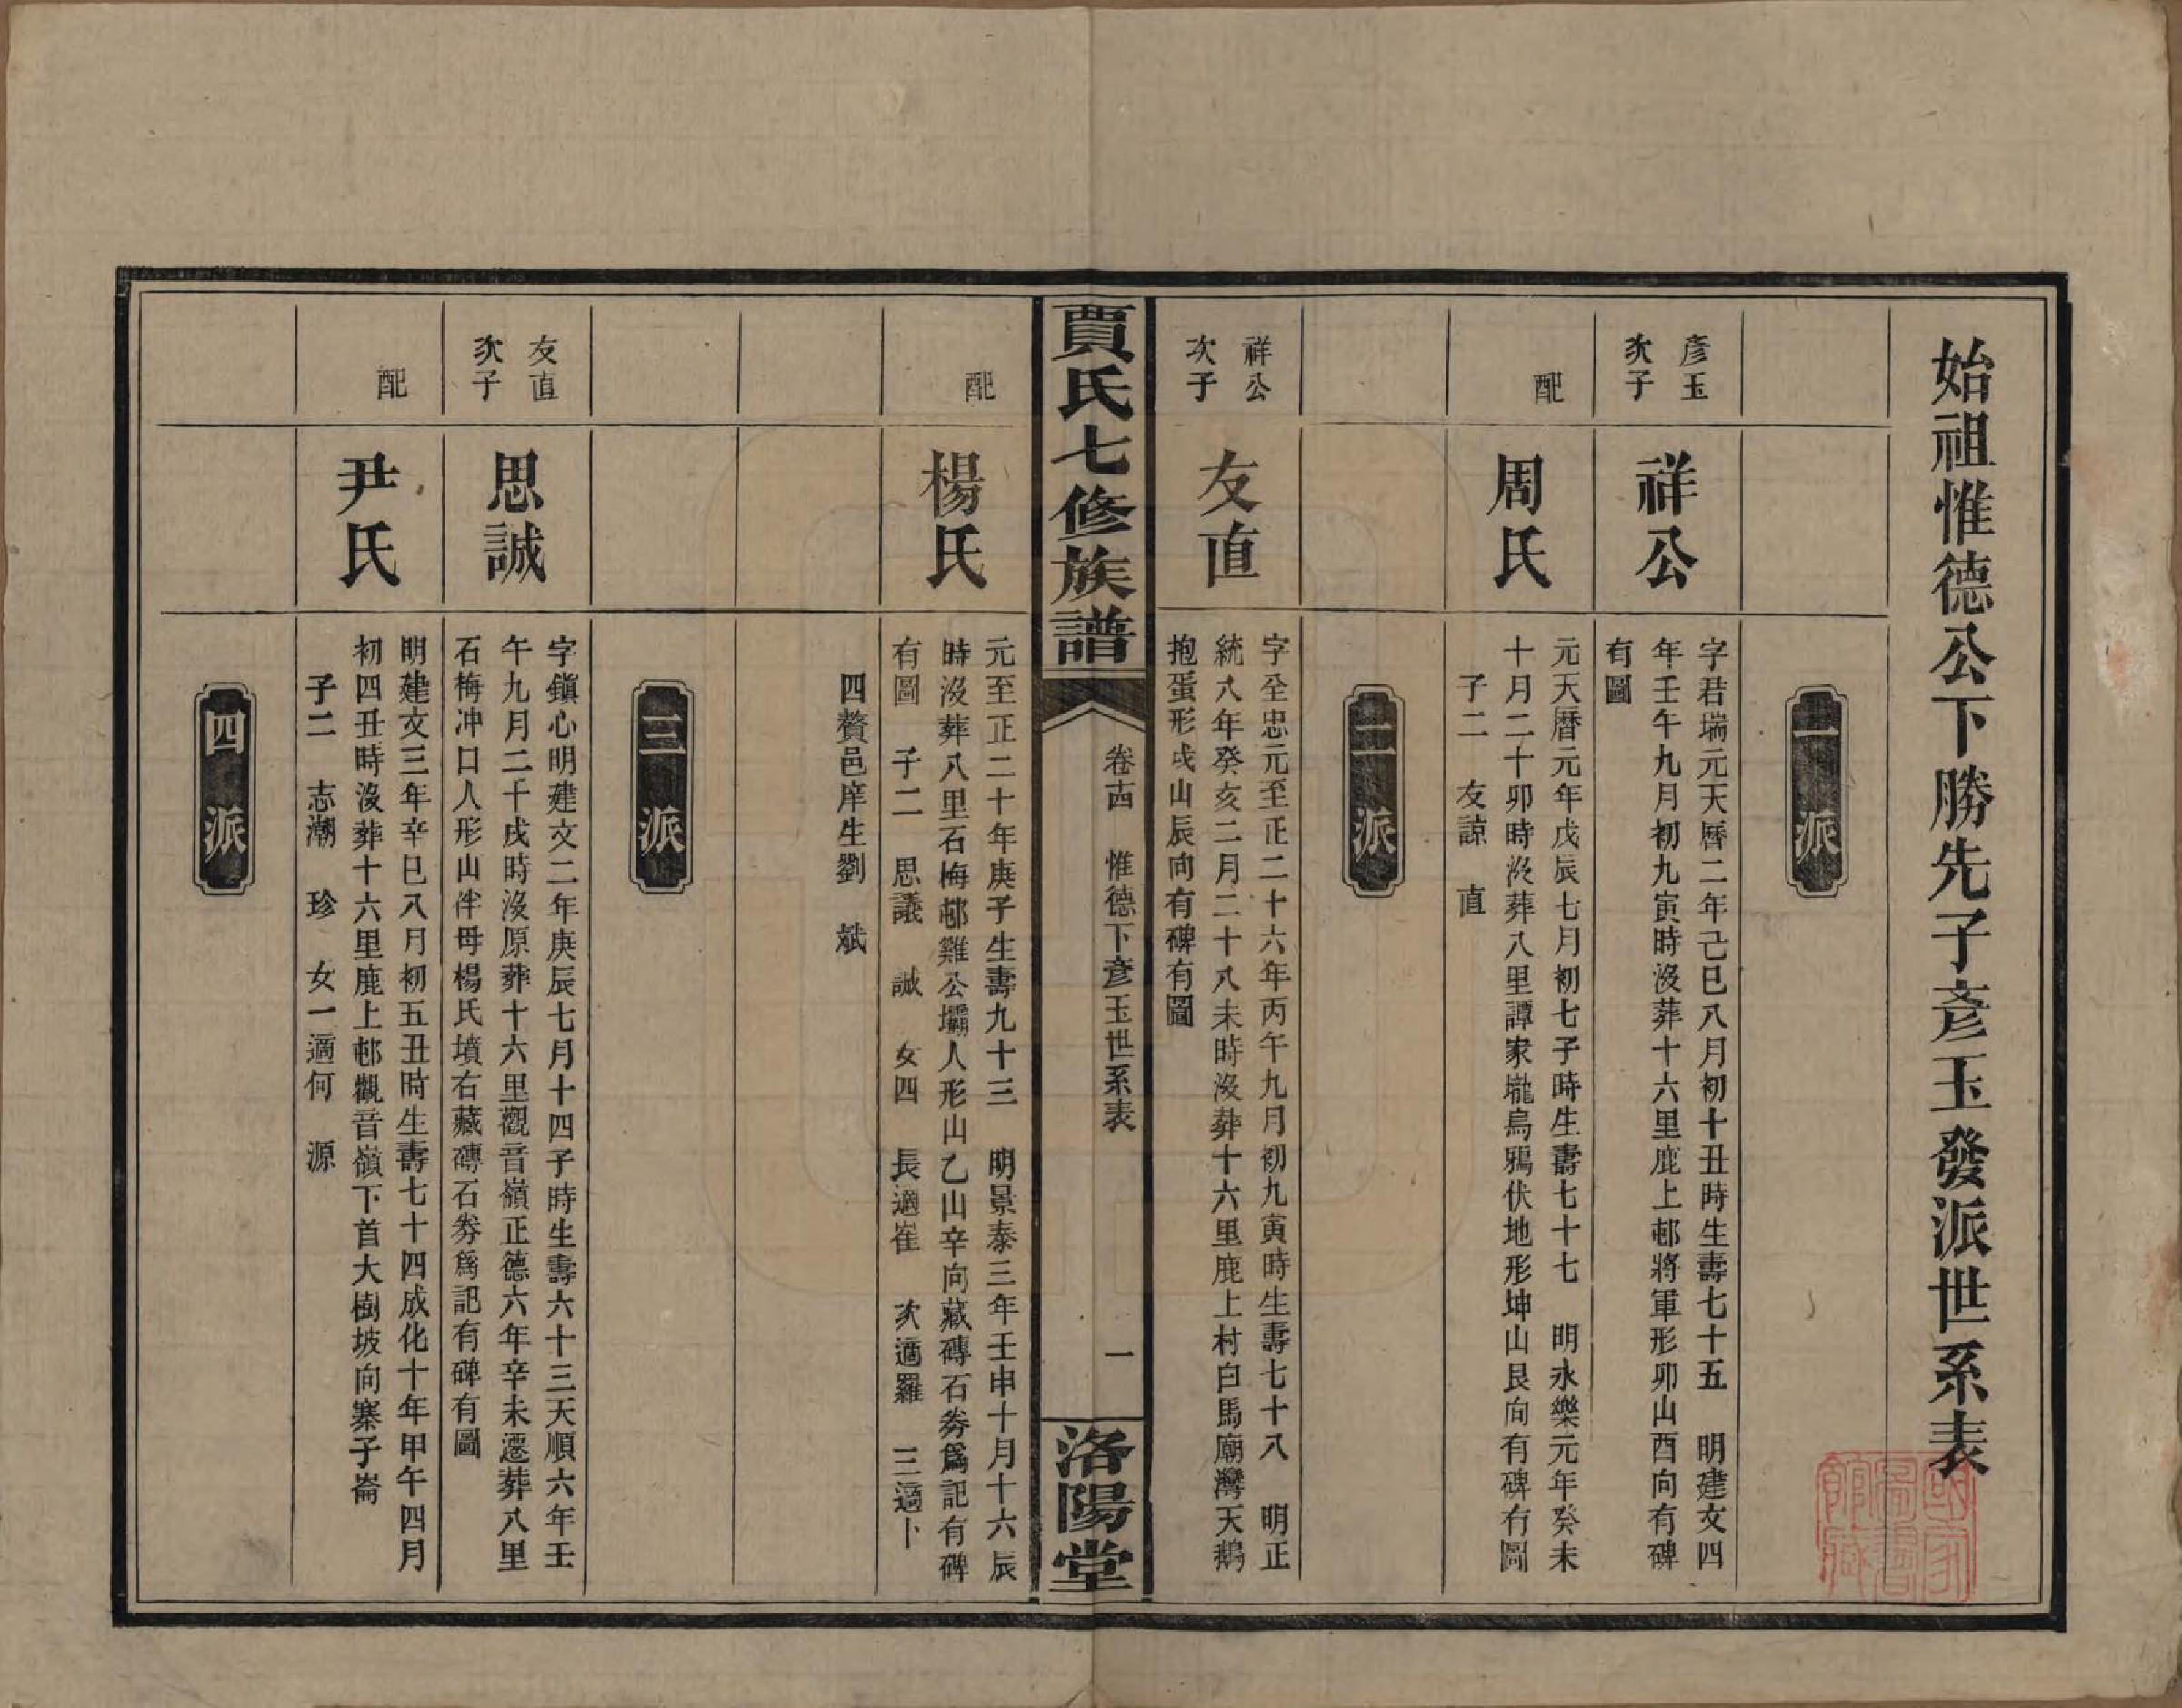 始祖惟德公下勝先子彥玉發派世系表
一派
彥玉
次子
祥公
字君瑞元天曆二年己巳八月初十丑時生壽七十五 明建文四
年壬午九月初九寅時沒葬十六里鹿上邨將軍形卯山酉向有碑
有圖
配
周氏
元天曆元年戊辰七月初七子時生壽七十七 明永樂元年癸未
十月二十卯時沒葬八里譚家壠烏鴉伏地形坤山艮向有碑有圖
子二 友諒 直
二派
祥公
次子
友直
字全忠元至正二十六年丙午九月初九寅時生壽七十八 明正
統八年癸亥二月二十八未時沒葬十六里鹿上村白馬廟灣天鵝
抱蛋形戌山辰向有碑有圖
賈氏七修族譜
卷 惟德下彥玉世系表
一
洛陽堂
配
楊氏
元至正二十年庚子生壽九十三 明景泰三年壬申十月十六辰
時沒葬八里石梅邨雞公壩人形山乙山辛向藏磚石券爲記有碑
有圖 子二 思議 誠 女四 長適崔 次適羅 三適卜
四贅邑庠生劉 斌
三派
友直
次子
思誠
字鎭心明建文二年庚辰七月十四子時生壽六十三天順六年壬
午九月二十戌時沒原葬十六里觀音嶺正德六年辛未遷葬八里
石梅冲口人形山伴母楊氏墳右藏磚石券爲記有碑有圖
配
尹氏
明建文三年辛巳八月初五丑時生壽七十四成化十年甲午四月
初四丑時沒葬十六里鹿上邨觀音嶺下首大樹坡向寨子崙
子二 志潮 珍 女一適何 源
四派
國家
圖書
館藏